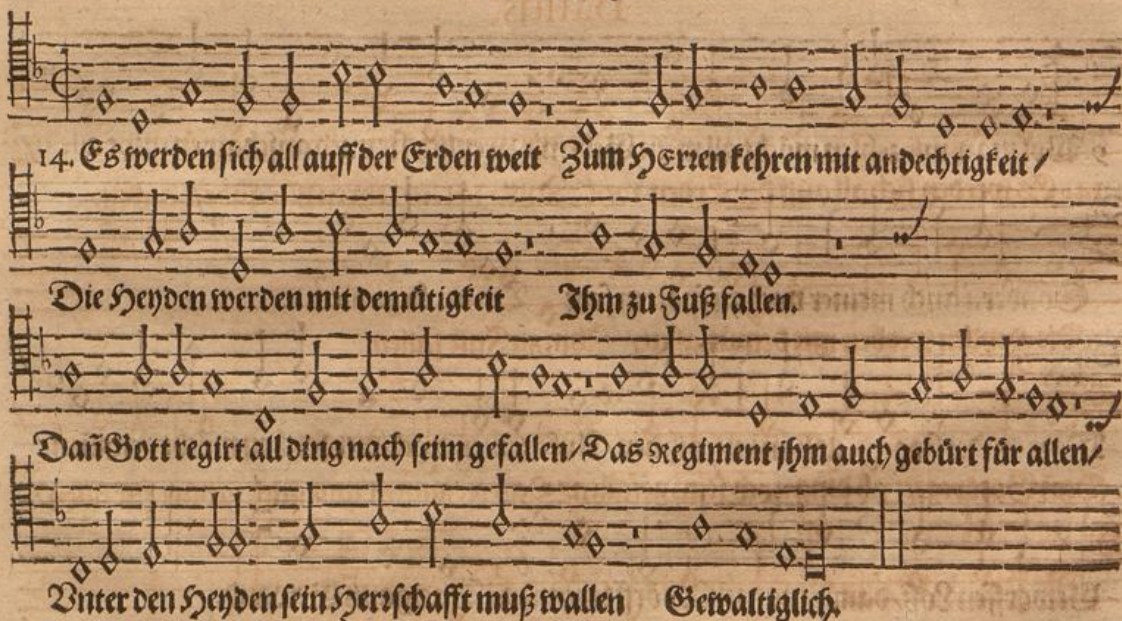 14. Es werden sich all auff der Erden weit Zum HErren kehren mit andechtigkeit /
Die Heyden werden mit demütigkeit Ihm zu Fuß fallen.
Dañ Gott regirt all ding nach seim gefallen / Das Regiment jhm auch gebürt für allen /
Vnter den Heyden sein Herrschafft muß wallen Gewaltiglich.